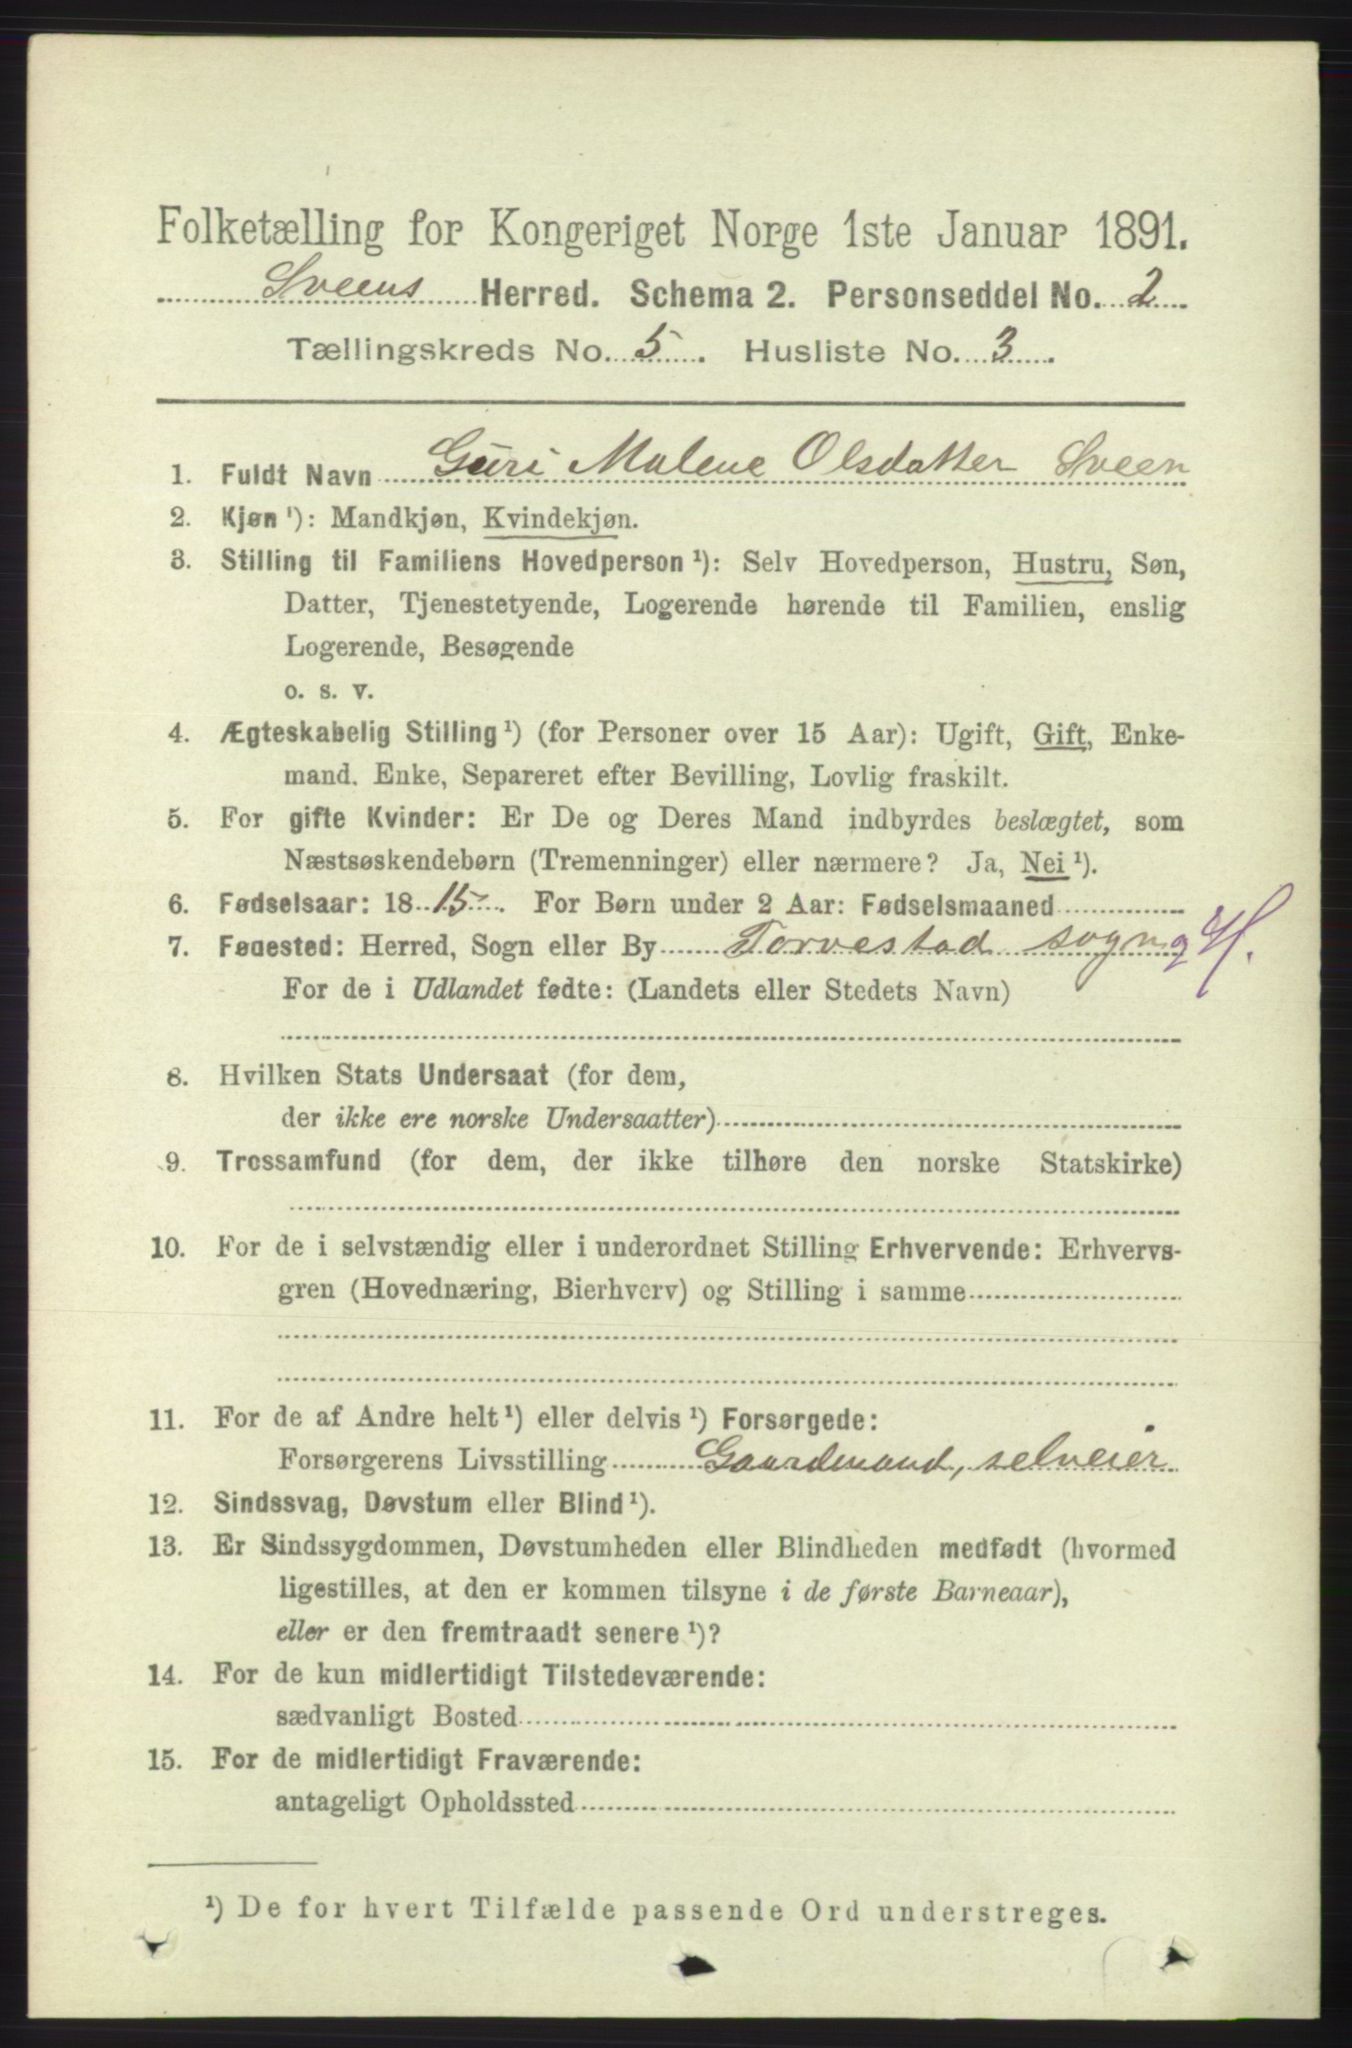 Folketælling for Kongeriget Norge 1ste Januar 1891.
Sveens Herred. Schema 2. Personseddel No. 2
Tællingskreds No. 5. Husliste No. 3
1. Fuldt Navn Guri Malene Olsdatter Sveen
2. Kjøn ¹): Mandkjøn, Kvindekjøn.
3. Stilling til Familiens Hovedperson ¹): Selv Hovedperson, Hustru, Søn,
Datter, Tjenestetyende, Logerende hørende til Familien, enslig
Logerende, Besøgende
o. s. v.
4. Ægteskabelig Stilling ¹) (for Personer over 15 Aar): Ugift, Gift, Enke-
mand. Enke, Separeret efter Bevilling, Lovlig fraskilt.
5. For gifte Kvinder: Er De og Deres Mand indbyrdes beslægtet, som
Næstsøskendebørn (Tremenninger) eller nærmere? Ja, Nei ¹).
6. Fødselsaar: 18 15. For Børn under 2 Aar: Fødselsmaaned
7. Føested: Herred, Sogn eller By Torvestad sogn
For de i Udlandet fødte: (Landets eller Stedets Navn)
8. Hvilken Stats Undersaat (for dem,
der ikke ere norske Undersaatter)
9. Trossamfund (for dem, der ikke tilhøre den norske Statskirke)
10. For de i selvstændig eller i underordnet Stilling Erhvervende: Erhvervs-
gren (Hovednæring, Bierhverv) og Stilling i samme
11. For de af Andre helt ¹) eller delvis ¹) Forsørgede:
Forsørgerens Livsstilling Gaardmand, selveier
12. Sindssvag, Døvstum eller Blind ¹).
13. Er Sindssygdommen, Døvstumheden eller Blindheden medfødt (hvormed
ligestilles, at den er kommen tilsyne i de første Barneaar),
eller er den fremtraadt senere ¹)?
14. For de kun midlertidigt Tilstedeværende:
sædvanligt Bosted
15. For de midlertidigt Fraværende:
antageligt Opholdssted
¹) De for hvert Tilfælde passende Ord understreges.